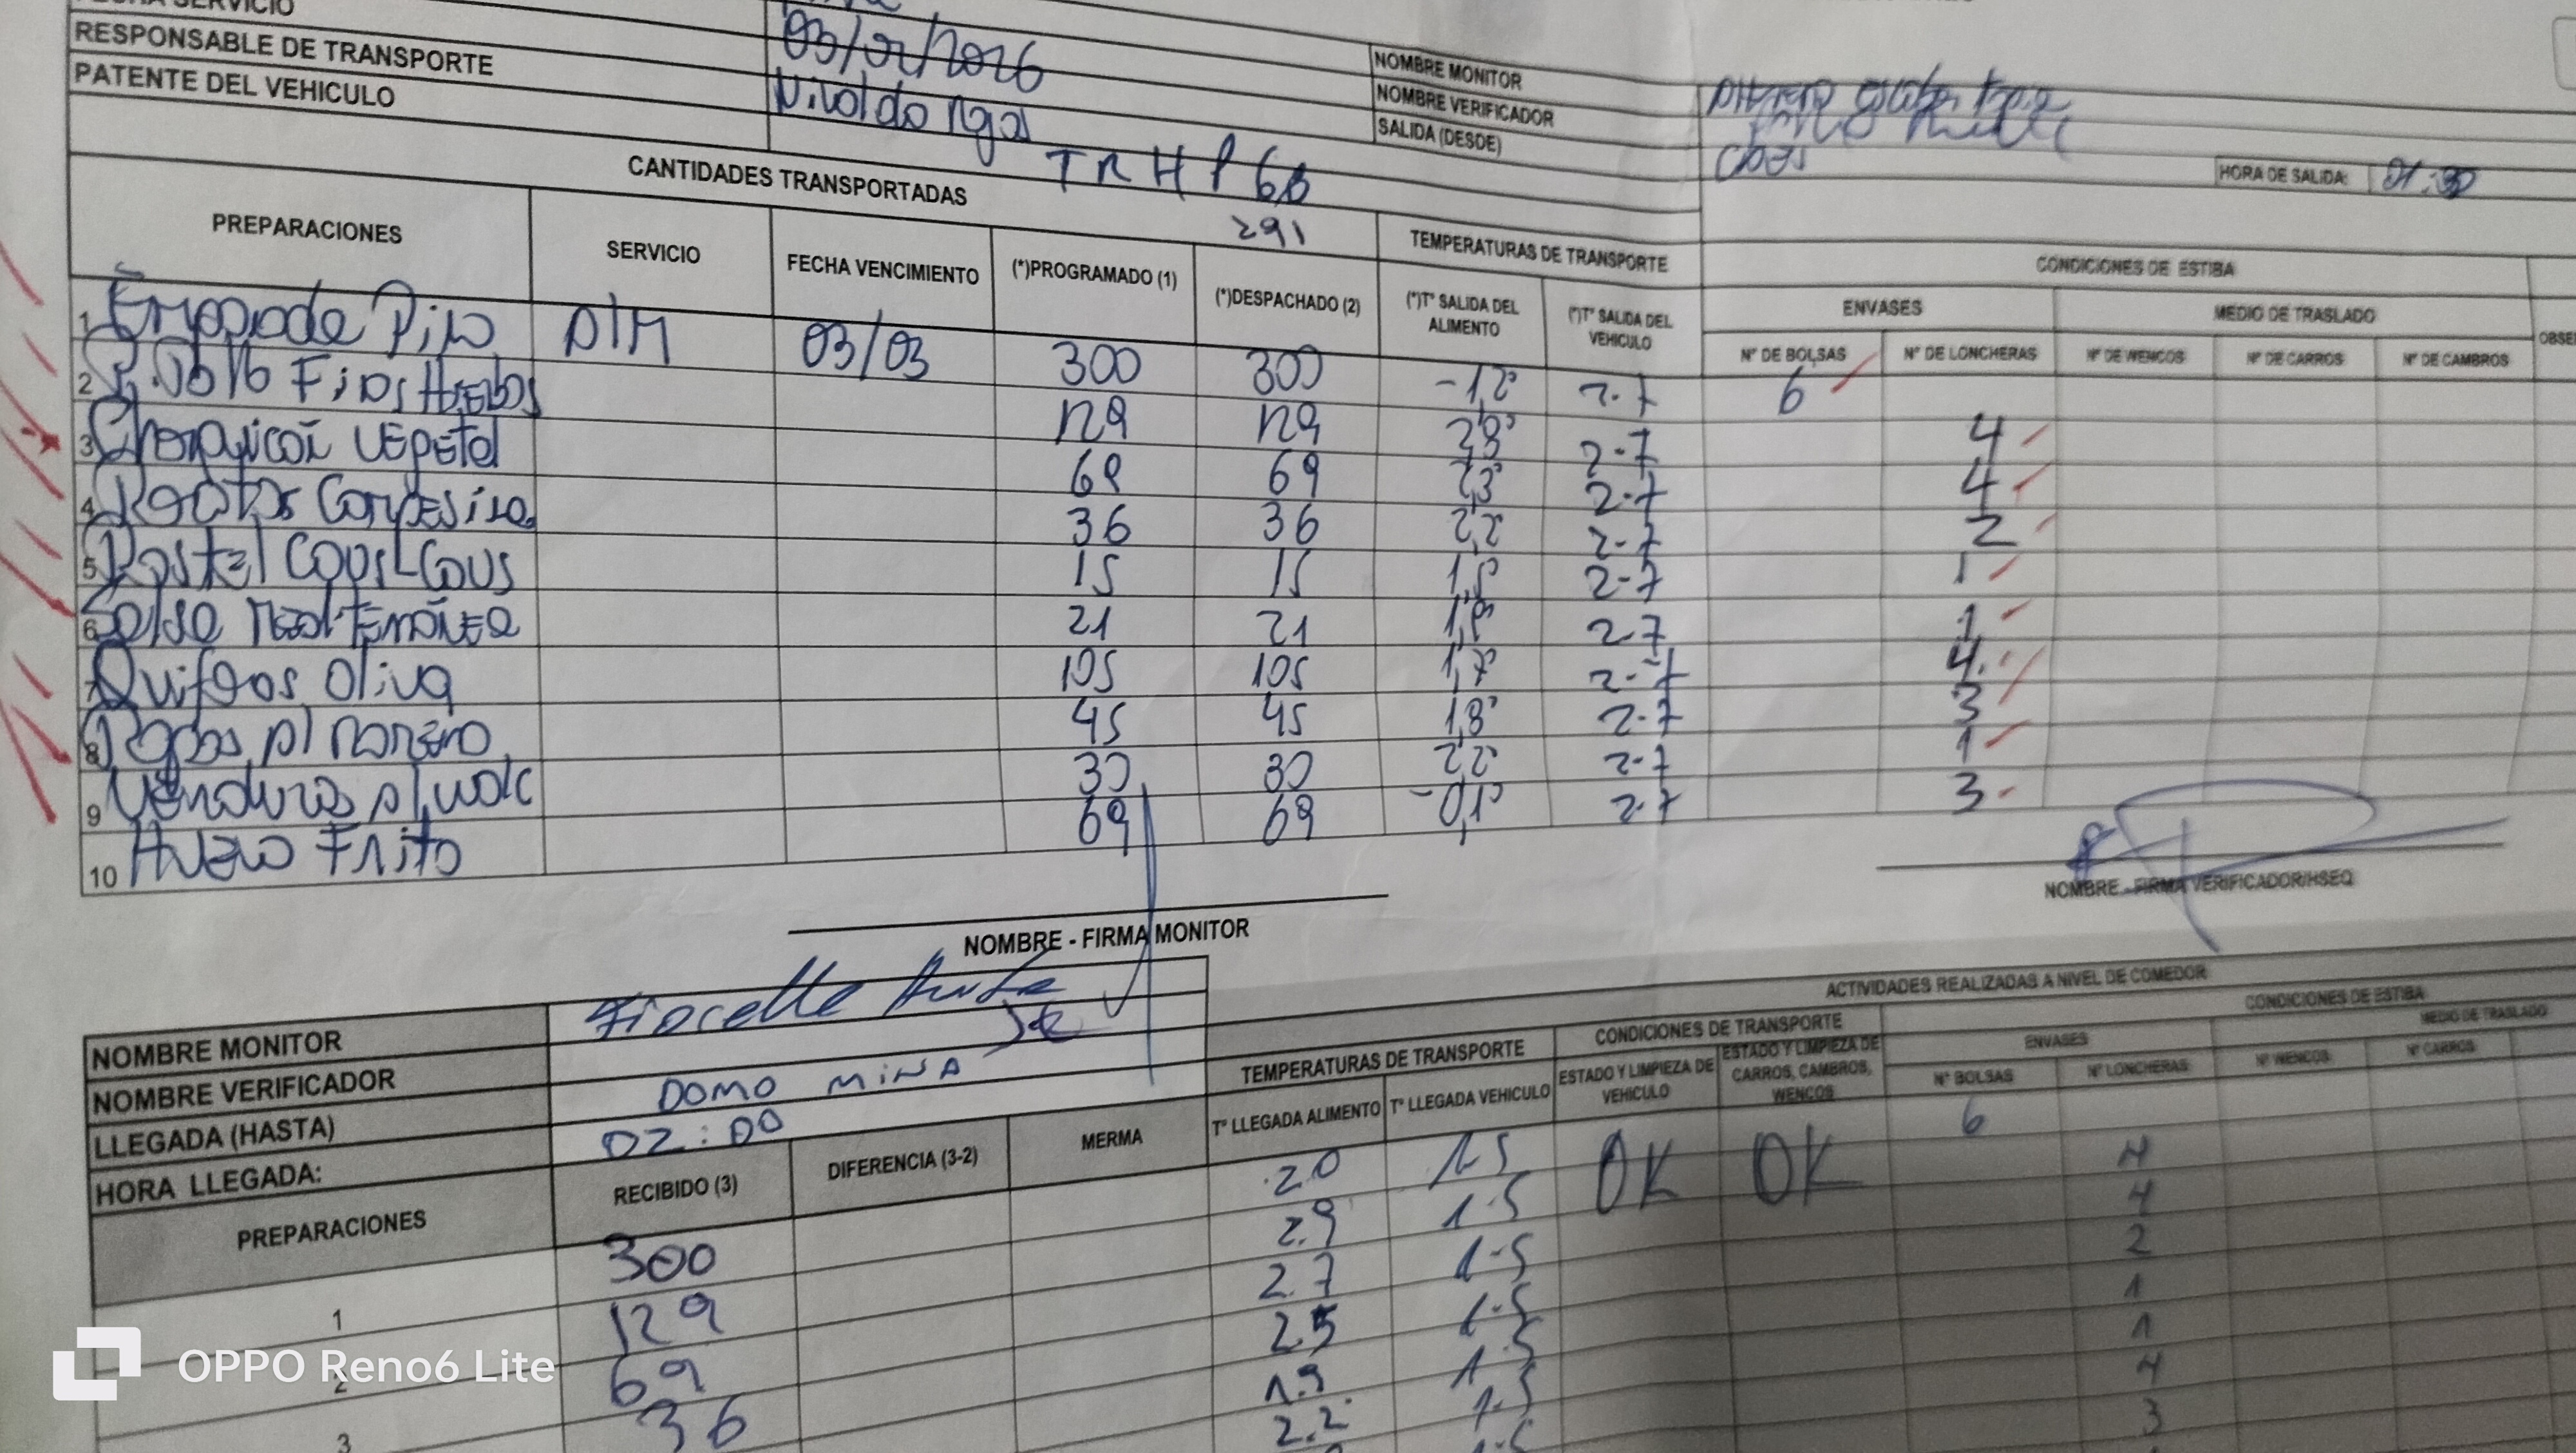 FECHA SERVICIO
03/02/2026
RESPONSABLE DE TRANSPORTE
Nivaldo
PATENTE DEL VEHICULO
TRHP68
NOMBRE MONITOR
NOMBRE VERIFICADOR
SALIDA (DESDE)
HORA DE SALIDA: 01:30
CANTIDADES TRANSPORTADAS
291
TEMPERATURAS DE TRANSPORTE
CONDICIONES DE ESTIBA
PREPARACIONES SERVICIO FECHA VENCIMIENTO (*)PROGRAMADO (1) (*)DESPACHADO (2) (*)T° SALIDA DEL ALIMENTO (*)T° SALIDA DEL VEHICULO
ENVASES MEDIO DE TRASLADO
N° DE BOLSAS N° DE LONCHERAS N° DE WENCOS N° DE CARROS N° DE CAMBROS OBSE
1 Empanada Pino D/M 03/03 300 300 -1,2° 2.7 6
2 P. Pollo Finas Hierbas 129 129 2,8° 2.7 4
3 Champiñon Vegetal 69 69 2,3° 2.7 4
4 Campesina 36 36 2,2° 2.7 2
5 Pastel Cous-Cous 15 15 1,5° 2.7 1
6 Salsa Mediterranea 21 21 1,8° 2.7 1
7 Oliva 105 105 1,7° 2.7 4
8 Papas p/ 45 45 1,8° 2.7 3
9 Verduras p/ wok 30 30 2,2° 2.7 1
10 Huevo Frito 69 69 -0,1° 2.7 3
NOMBRE - FIRMA MONITOR
NOMBRE - FIRMA VERIFICADOR/HSEQ
ACTIVIDADES REALIZADAS A NIVEL DE COMEDOR
NOMBRE MONITOR
NOMBRE VERIFICADOR
LLEGADA (HASTA) DOMO MINA
HORA LLEGADA: 02:00
TEMPERATURAS DE TRANSPORTE CONDICIONES DE TRANSPORTE CONDICIONES DE ESTIBA
ENVASES MEDIO DE TRASLADO
PREPARACIONES RECIBIDO (3) DIFERENCIA (3-2) MERMA T° LLEGADA ALIMENTO T° LLEGADA VEHICULO ESTADO Y LIMPIEZA DE VEHICULO ESTADO Y LIMPIEZA DE CARROS, CAMBROS, WENCOS N° BOLSAS N° LONCHERAS N° WENCOS N° CARROS
1 300 2.0 1.5 OK OK 6
2 129 2.9 1.5 4
3 69 2.7 1.5 4
36 2.5 1.5 2
1.9 1.5 1
2.2 1.5 1
4
3
OPPO Reno6 Lite